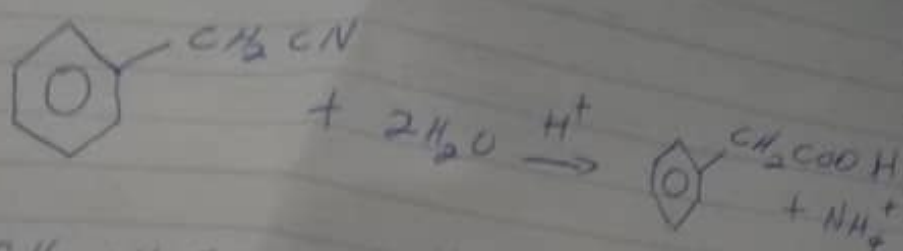 CH₂CN
+ 2H₂O H⁺ →
CH₂COOH
+ NH₄⁺